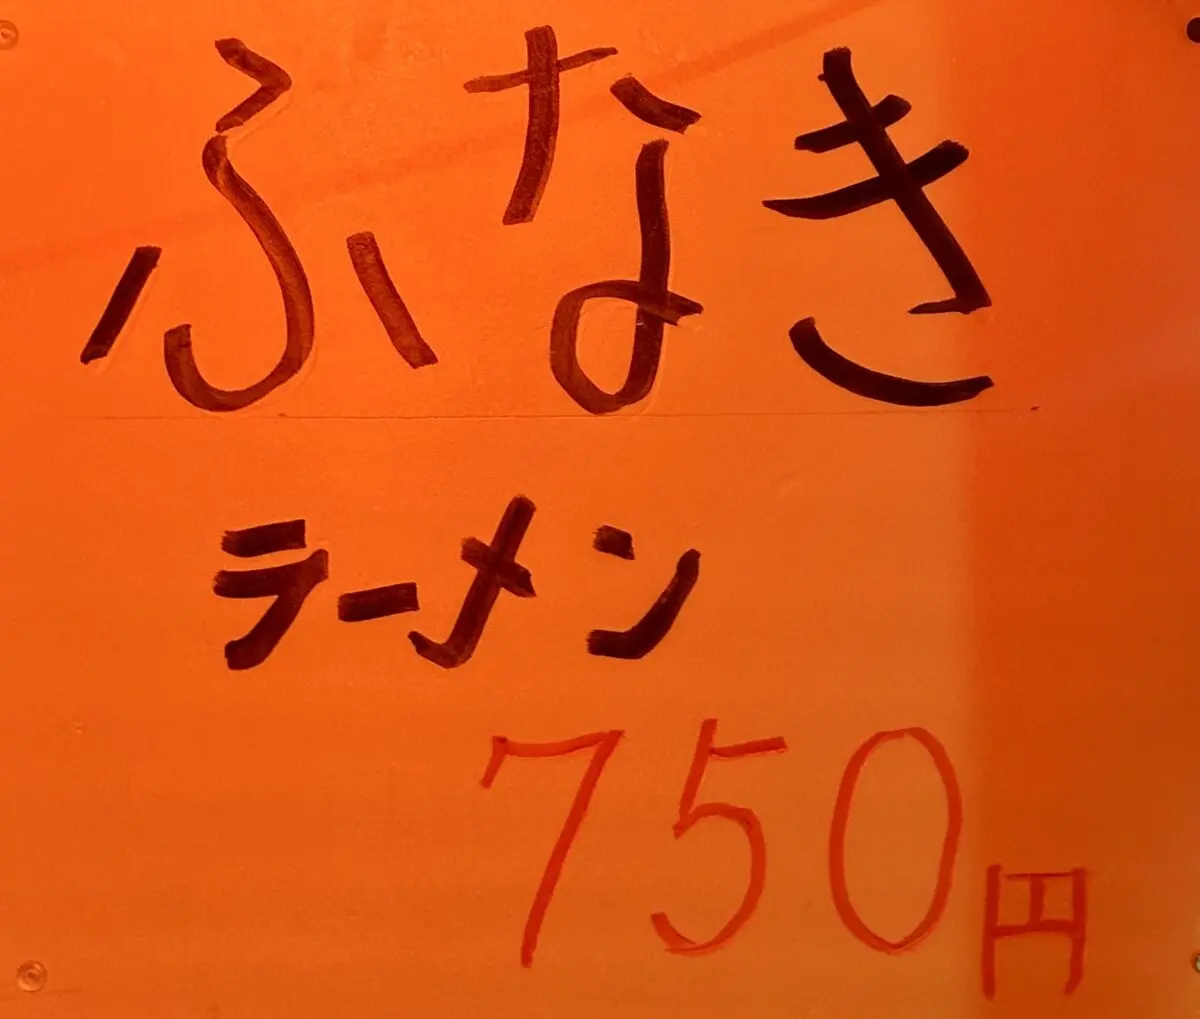 ふなき
ラーメン
750円